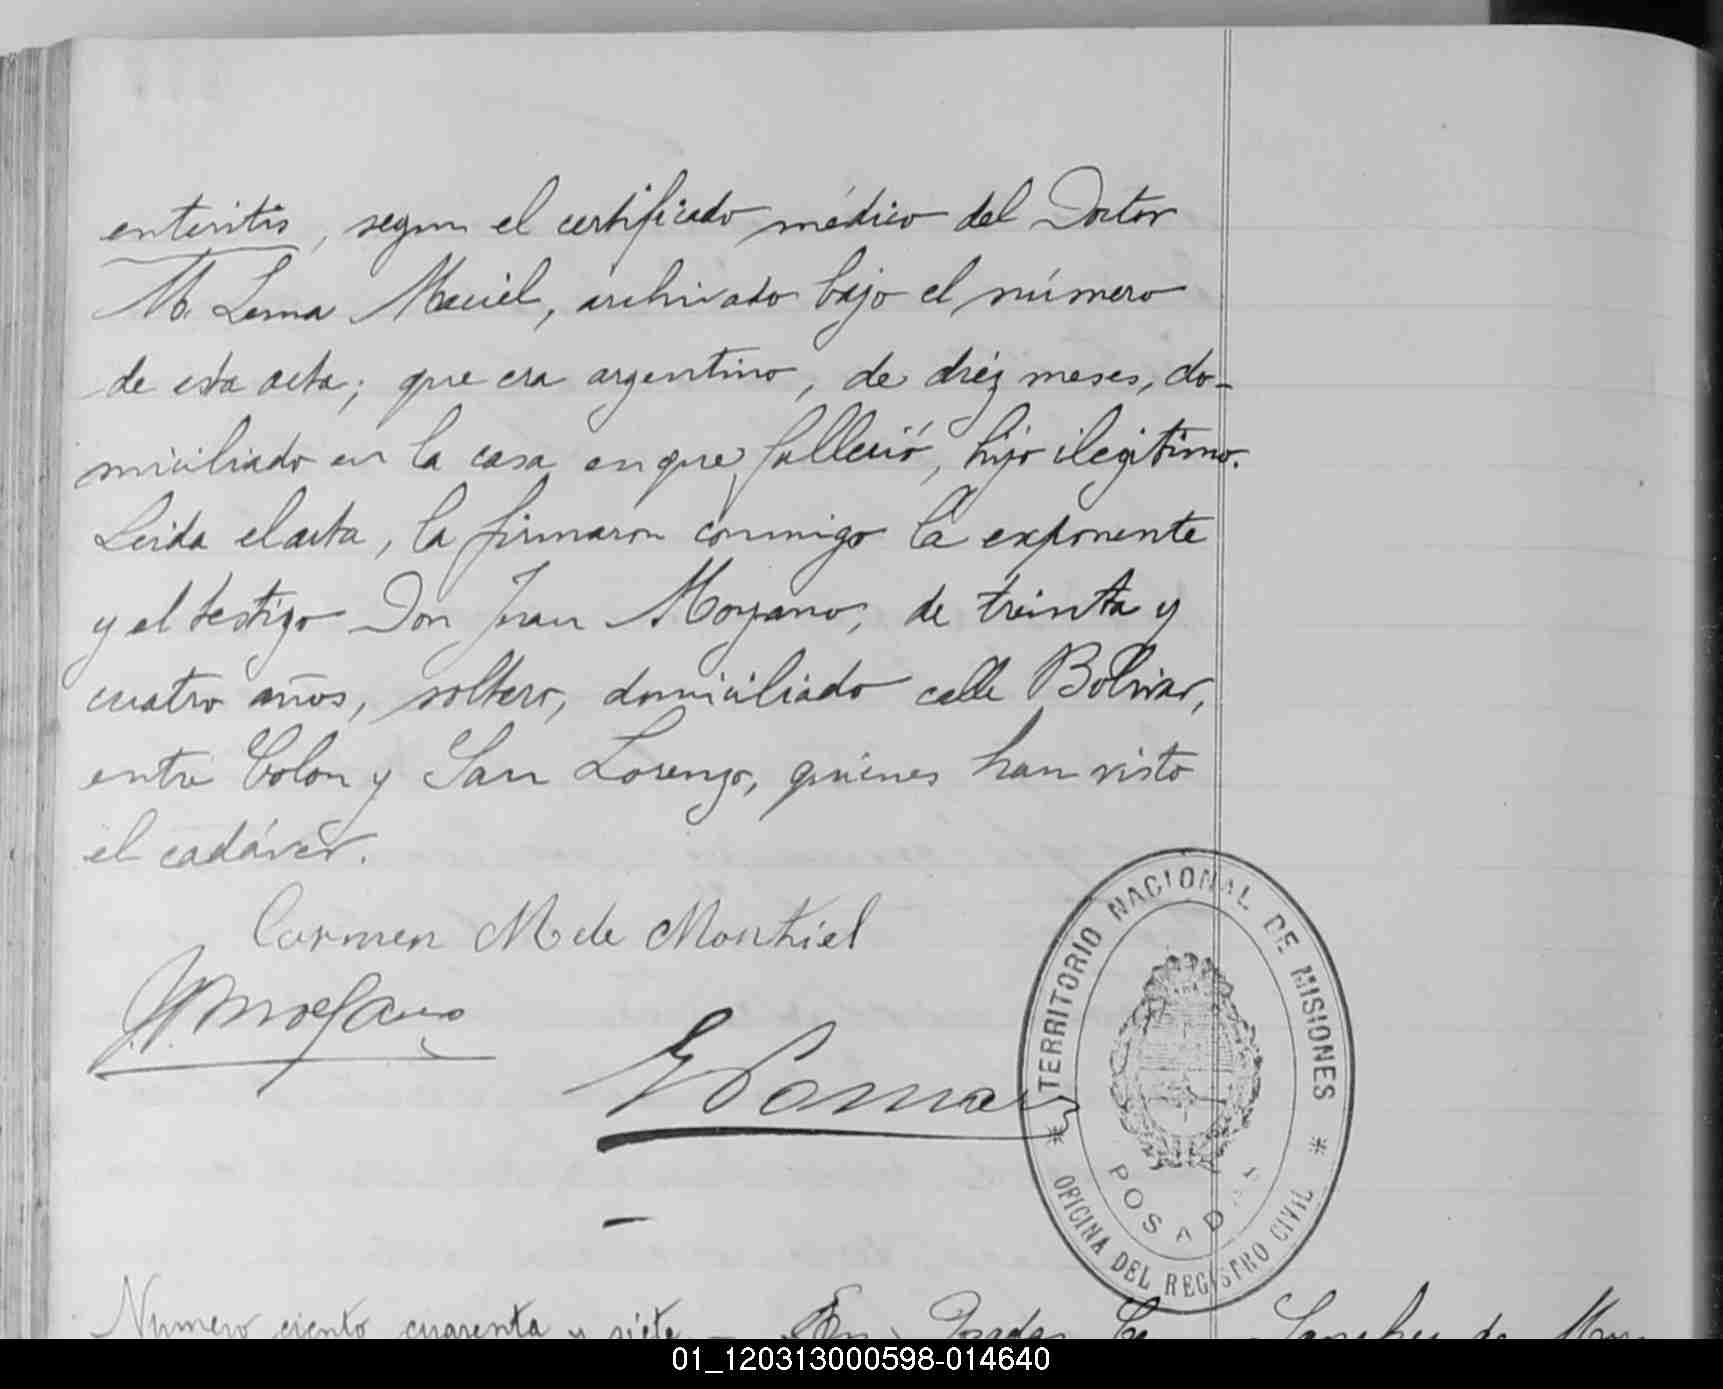 enteritis, segun el certificado médico del Doctor
M. Lema Maciel, archivado bajo el número
de esta acta; que era argentino, de diéz meses, do-
miciliado en la casa en que falleció, hijo ilegitimo.
Leida el acta, la firmaron conmigo la exponente
y el testigo Don Juan Moyano, de treinta y
cuatro años, soltero, domiciliado calle Bolivar,
entre Colon y San Lorenzo, quienes han visto
el cadáver.
Carmen M de Montiel
TERRITORIO NACIONAL DE MISIONES
POSADAS
OFICINA DEL REGISTRO CIVIL
Numero ciento cuarenta y siete - En Posadas
Sanchez de
01_120313000598-014640